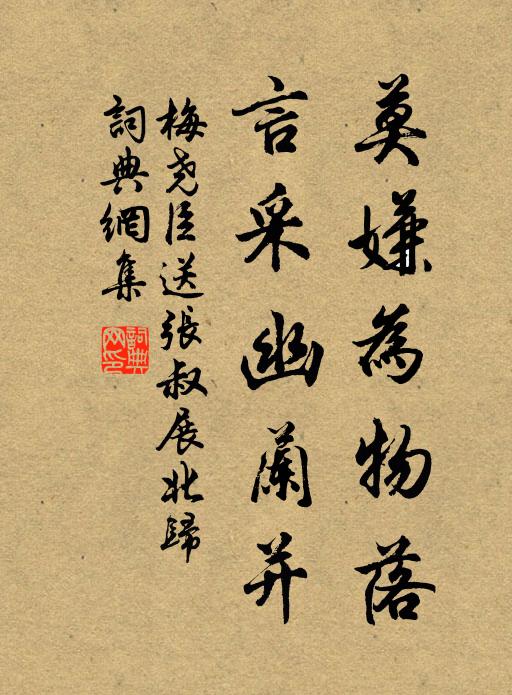 莫嫌為物落
言采幽蘭并
梅尧臣送張叔展北歸
詞典網集
詞典
网印